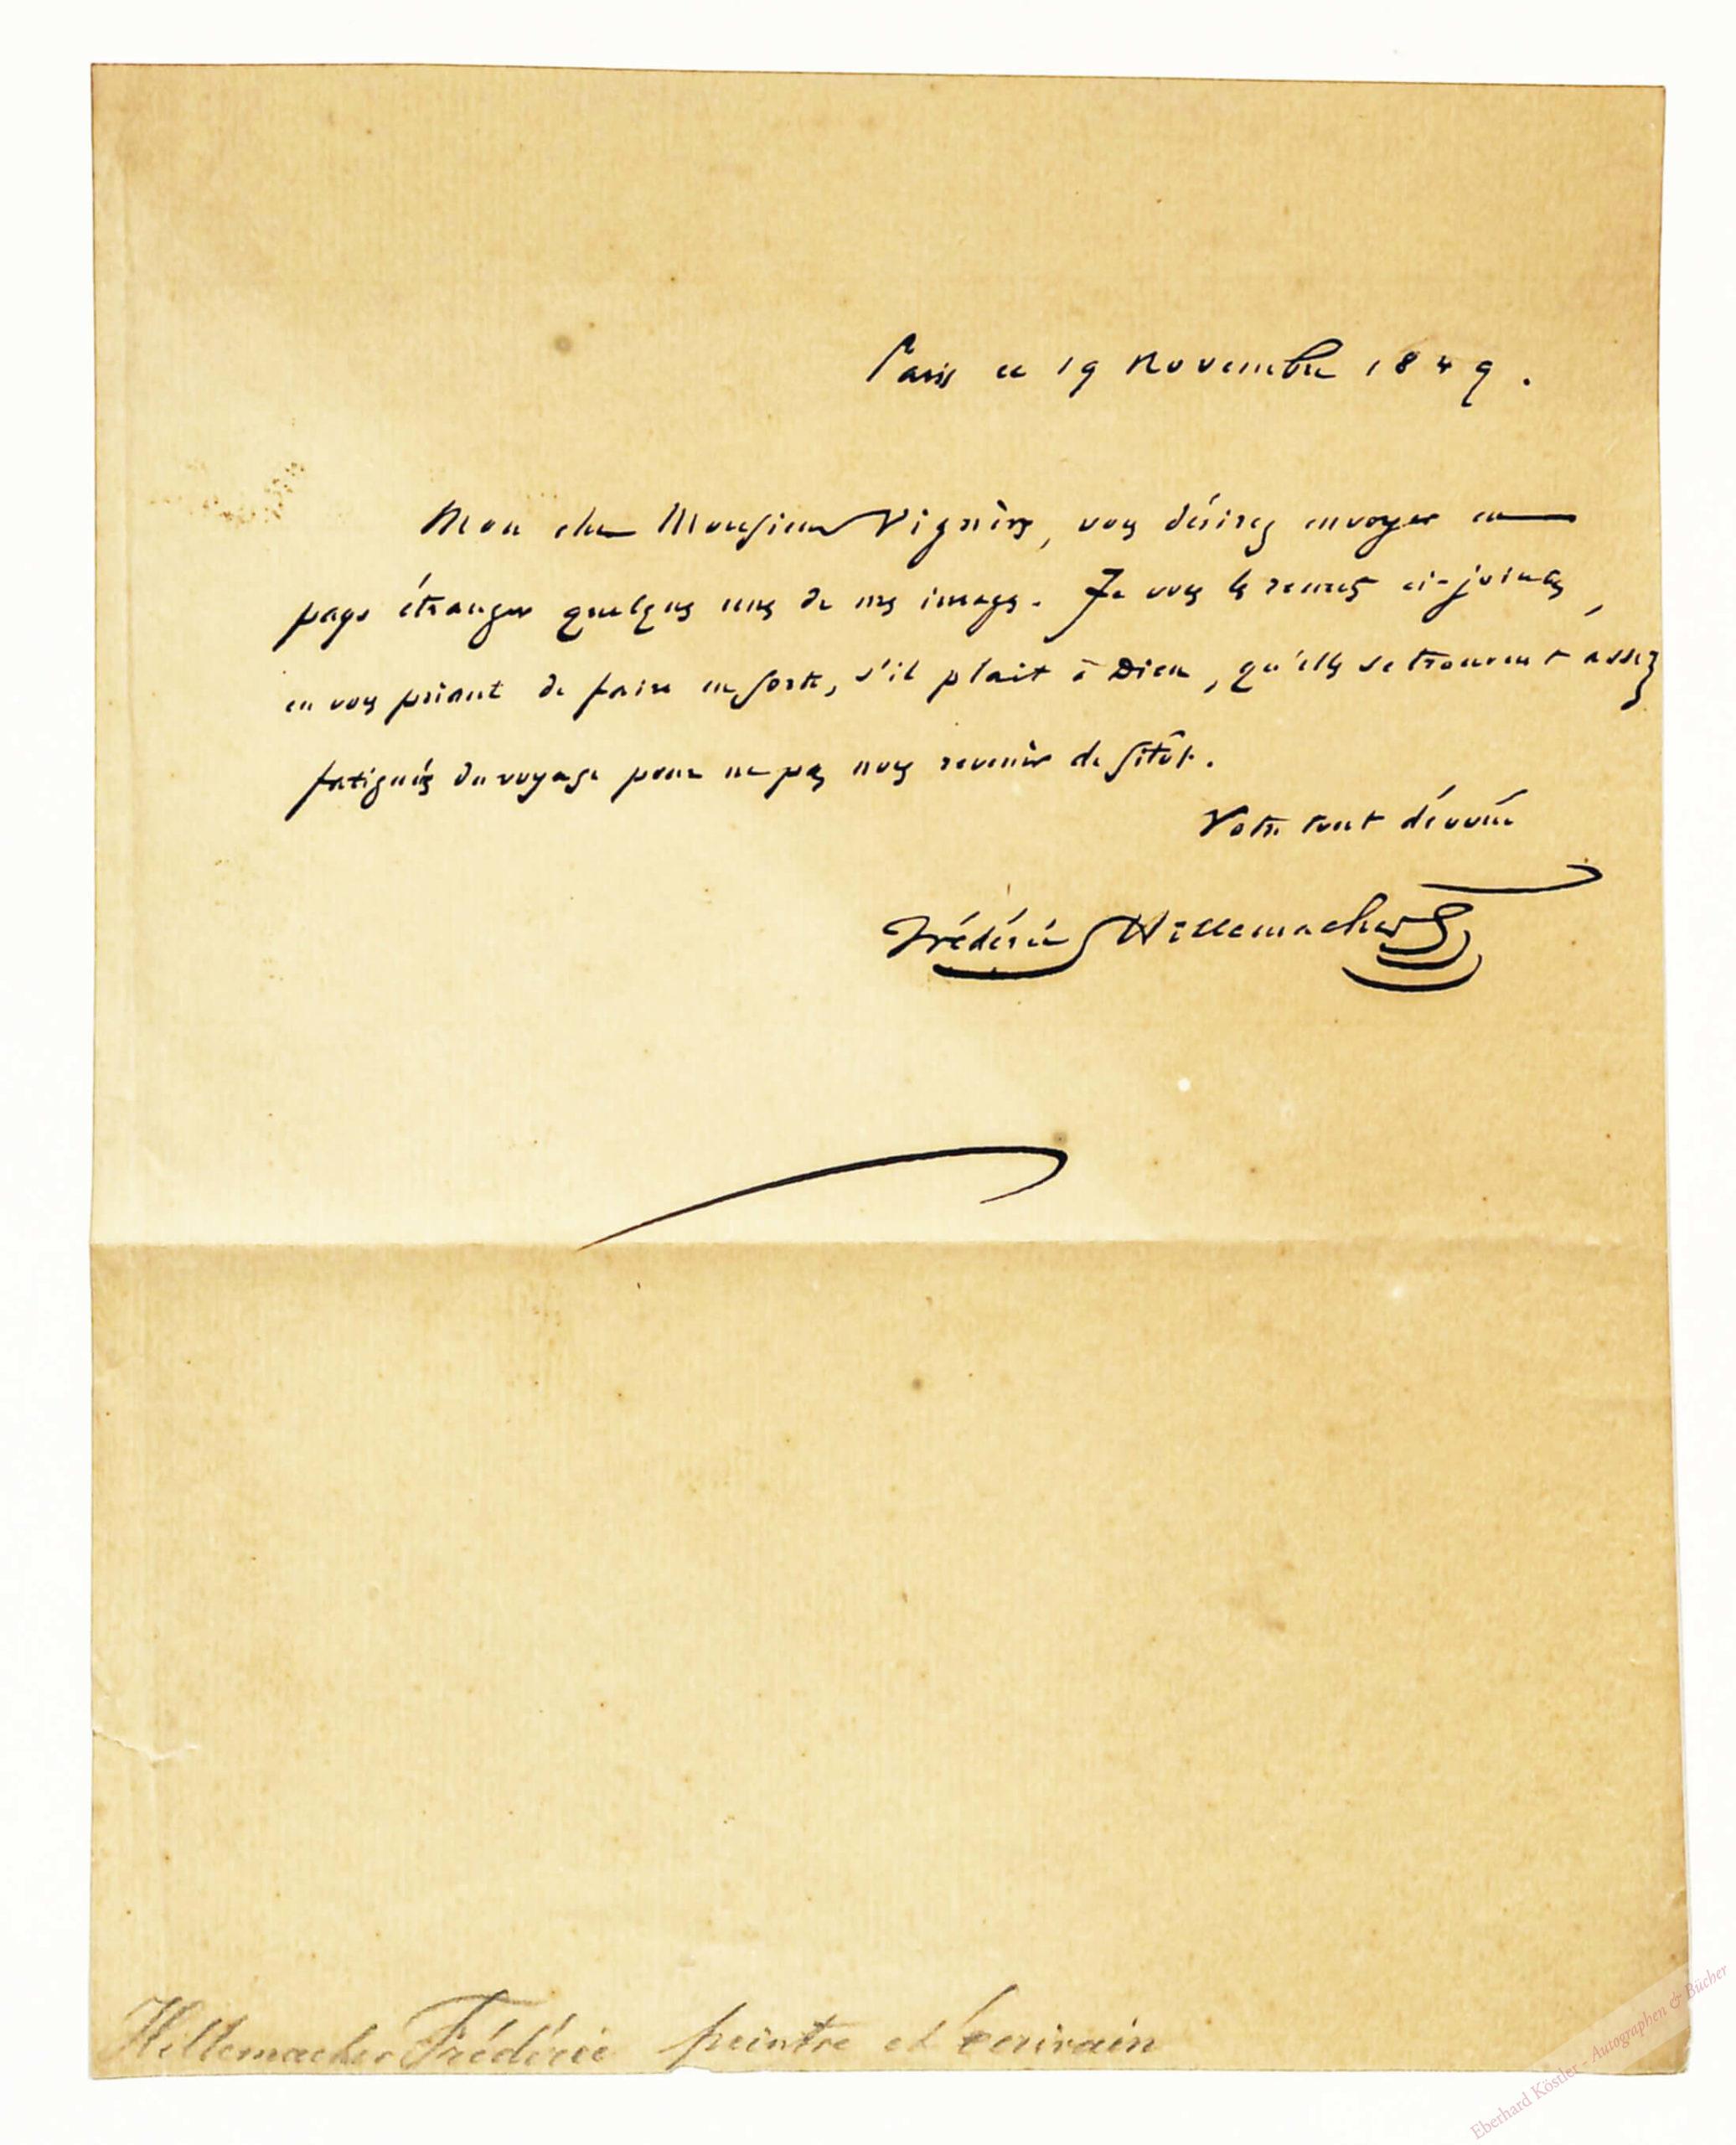 Paris ce 19 Novembre 1849.
Mon cher Monsieur Vignères, vous désirez envoyer en
pays étranger quelques unes de mes images. Je vous les remets ci-jointes,
en vous priant de faire en sorte, s'il plait à Dieu, qu'elles se trouvent assez
fatiguées du voyage pour ne pas nous revenir de sitôt.
Votre tout dévoué
Frédéric Hillemacher
Hillemacher Frédéric peintre et écrivain
Eberhard Köstler - Autographen & Bücher